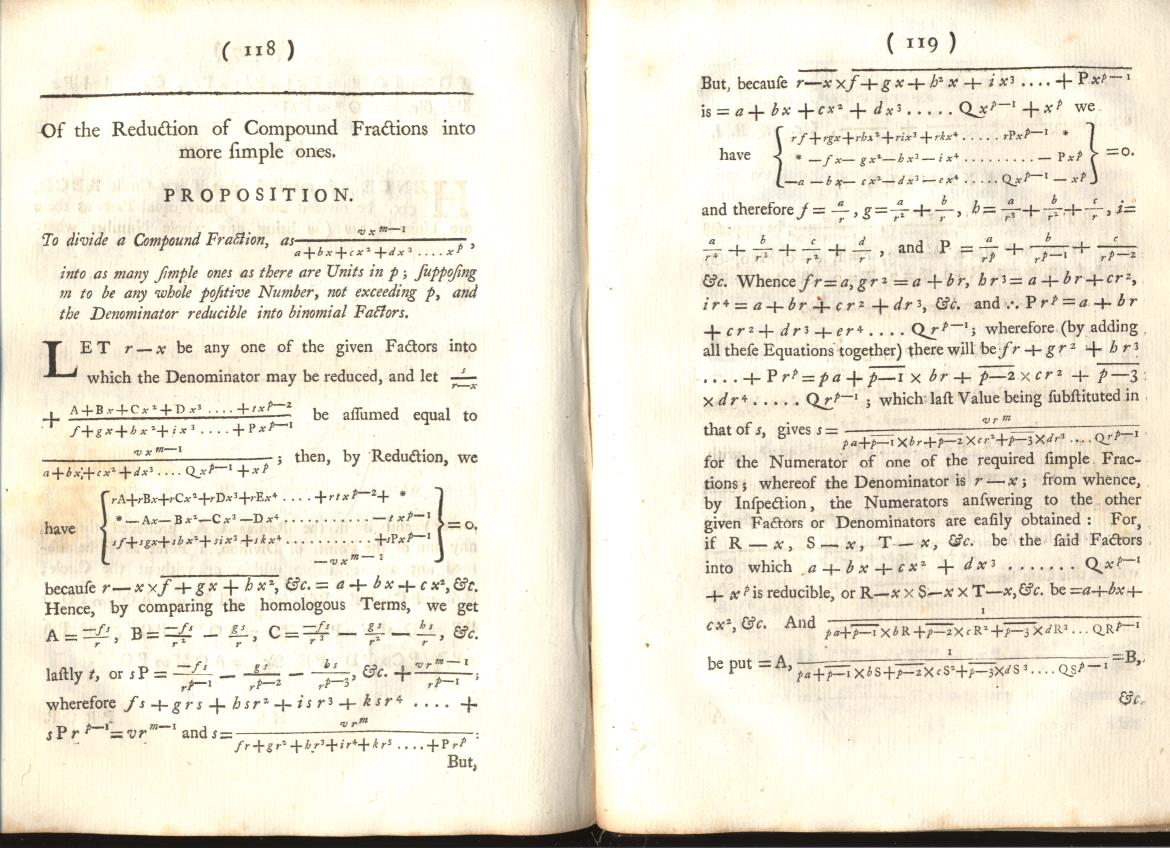 ( 118 )
Of the Reduction of Compound Fractions into
more ſimple ones.
PROPOSITION.
To divide a Compound Fraction, as vx^{m—1}/(a+bx+cx²+dx³ ....x^p),
into as many ſimple ones as there are Units in p; ſuppoſing
m to be any whole poſitive Number, not exceeding p, and
the Denominator reducible into binomial Factors.
LET r—x be any one of the given Factors into
which the Denominator may be reduced, and let s/(r—x)
+ (A+Bx+Cx²+Dx³ ....+tx^{p—2})/(f+gx+hx²+ix³ ....+Px^{p—1}) be aſſumed equal to
vx^{m—1}/(a+bx+cx²+dx³ .... Qx^{p—1}+x^p); then, by Reduction, we
have
rA+rBx+rCx²+rDx³+rEx⁴ ....+rtx^{p—2}+ *
*—Ax—Bx²—Cx³—Dx⁴ ............—tx^{p—1}
sf+sgx+shx²+six³+skx⁴ ............+sPx^{p—1}
—vx^{m—1}
=0,
becauſe r—x×f+gx+hx², &c. = a+bx+cx², &c.
Hence, by comparing the homologous Terms, we get
A=—fs/r, B=—fs/r² — gs/r, C=—fs/r³ — gs/r² — hs/r, &c.
laſtly t, or sP=—fs/r^{p—1} — gs/r^{p—2} — hs/r^{p—3}, &c. + vr^{m—1}/r^{p—1};
wherefore fs+grs+hsr²+isr³+ksr⁴ .... +
sPr^{p—1}=vr^{m—1} and s=vr^m/(fr+gr²+hr³+ir⁴+kr⁵ ....+Pr^p):
But,
( 119 )
But, becauſe r—x×f+gx+h²x+ix³ ....+Px^{p—1}
is=a+bx+cx²+dx³ ..... Qx^{p—1}+x^p we
have
rf+rgx+rhx²+rix³+rkx⁴ ..... rPx^{p—1} *
*—fx—gx²—hx³—ix⁴ ..........—Px^p
—a—bx—cx²—dx³—ex⁴ .....Qx^{p—1}—x^p
=0.
and therefore f=a/r, g=a/r²+b/r, h=a/r³+b/r²+c/r, i=
a/r⁴+b/r³+c/r²+d/r, and P=a/r^p+b/r^{p—1}+c/r^{p—2}
&c. Whence fr=a, gr²=a+br, hr³=a+br+cr²,
ir⁴=a+br+cr²+dr³, &c. and ∴ Pr^p=a+br
+cr²+dr³+er⁴ .... Qr^{p—1}; wherefore (by adding
all theſe Equations together) there will be fr+gr²+hr³
....+Pr^p=pa+p—1×br+p—2×cr²+p—3
×dr⁴ ..... Qr^{p—1}; which laſt Value being ſubſtituted in
that of s, gives s=vr^m/(pa+p—1×br+p—2×cr²+p—3×dr³ ....Qr^{p—1})
for the Numerator of one of the required ſimple Frac-
tions; whereof the Denominator is r—x; from whence,
by Inſpection, the Numerators anſwering to the other
given Factors or Denominators are eaſily obtained: For,
if R—x, S—x, T—x, &c. be the ſaid Factors
into which a+bx+cx²+dx³ ....... Qx^{p—1}
+x^p is reducible, or R—x×S—x×T—x, &c. be=a+bx+
cx², &c. And 1/(pa+p—1×bR+p—2×cR²+p—3×dR³ ... QR^{p—1})
be put=A, 1/(pa+p—1×bS+p—2×cS²+p—3×dS³ .... QS^{p—1})=B,
&c.